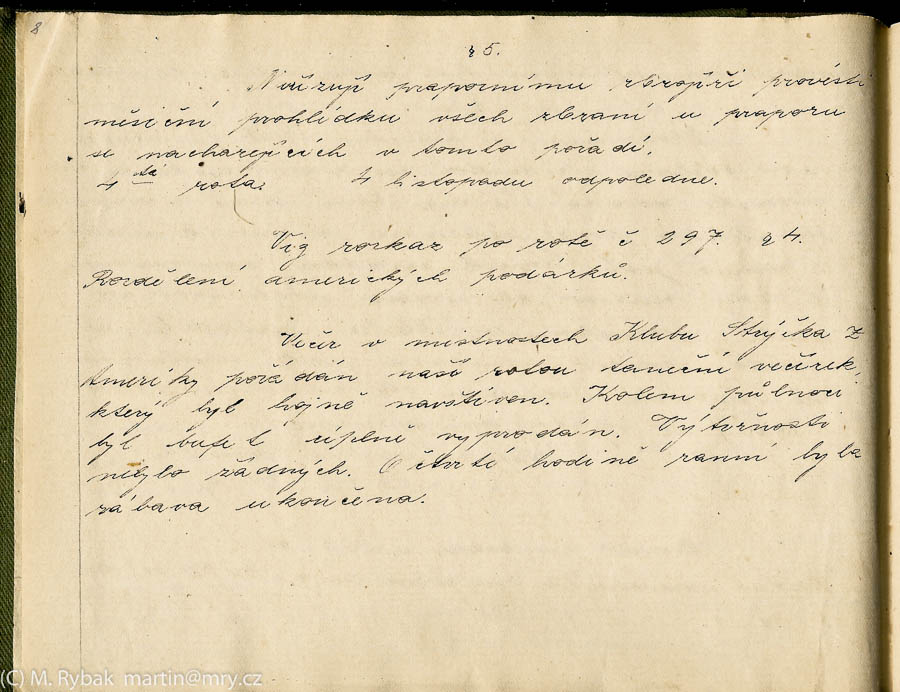 8
§ 5.
Nařizuji prapornímu zbrojíři provésti
měsíční prohlídku všech zbraní u praporu
se nacházejících v tomto pořadí.
4tá rota. 4 listopadu odpoledne.
Viz rozkaz po rotě č 297. § 4.
Rozdělení amerických podárků.
Večír v mistnostech Klubu Strýčka z
Ameriky pořádán naší rotou taneční večírek,
který byl hojně navštíven. Kolem půlnoci
byl bufet úplně vyprodán. Výtržnosti
nebylo žádných. O čtvrté hodině ranní byla
zábava ukončena.
(C) M. Rybak martin@mry.cz